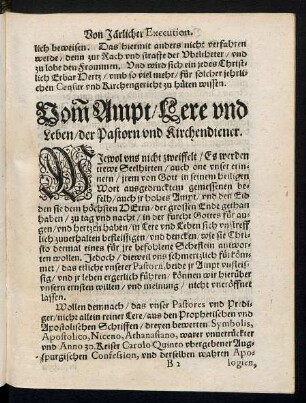 Von Järlicher Execution.
lich beweisen. Das hiermit anders nicht verfahren
werde/ denn zur Rach vnd straffe der Vbeltheter/ vnd
zu lobe den Frommen. Vnd wird sich ein jedes Christ-
lich Erbar Hertz/ vmb so viel mehr/ für solcher jehrli-
chen Censur vnd Kirchengericht zu hüten wissen.
Vom̃ Ampt/ Lere vnd
Leben/ der Pastorn vnd Kirchendiener.
WJewol vns nicht zweiffelt/ Es werden
trewe Seelhirten/ auch one vnser erin-
nern/ jrem von Gott in seinem heiligen
Wort ausgedrucktem gemessenen be-
felh/ auch jr hohes Ampt/ vnd den Eid
den sie dem höchsten HErrn/ der grossen Ende gethan
haben/ zu tag vnd nacht/ in der furcht Gottes für au-
gen/ vnd hertzen haben/ in Lere vnd Leben sich vnstreff-
lich zuuerhalten befleissigen/ vnd dencken/ wie sie Chri-
sto dermal eines für jre befohlene Scheflein antwor-
ten wollen. Jedoch/ dieweil vns schmertzlich für köm-
met/ das etliche vnserer Pastorn/ beide jr Ampt vnfleis-
sig/ vnd jr leben ergerlich führen/ können wir hierüber
vnsern ernsten willen/ vnd meinung/ nicht vneröffnet
lassen.
Wollen demnach/ das vnser Pastores vnd Predi-
ger/ nicht allein reiner Lere/ aus den Prophetischen vnd
Apostolischen Schrifften/ dreyen bewerten Symbolis,
Apostolico, Niceno, Athanasiano, warer vnuerruckter
vnd Anno 30. Keiser Carolo Quinto vbergebener Aug-
spurgischen Confession, vnd derselben wahren Apo-
B 2 logien,